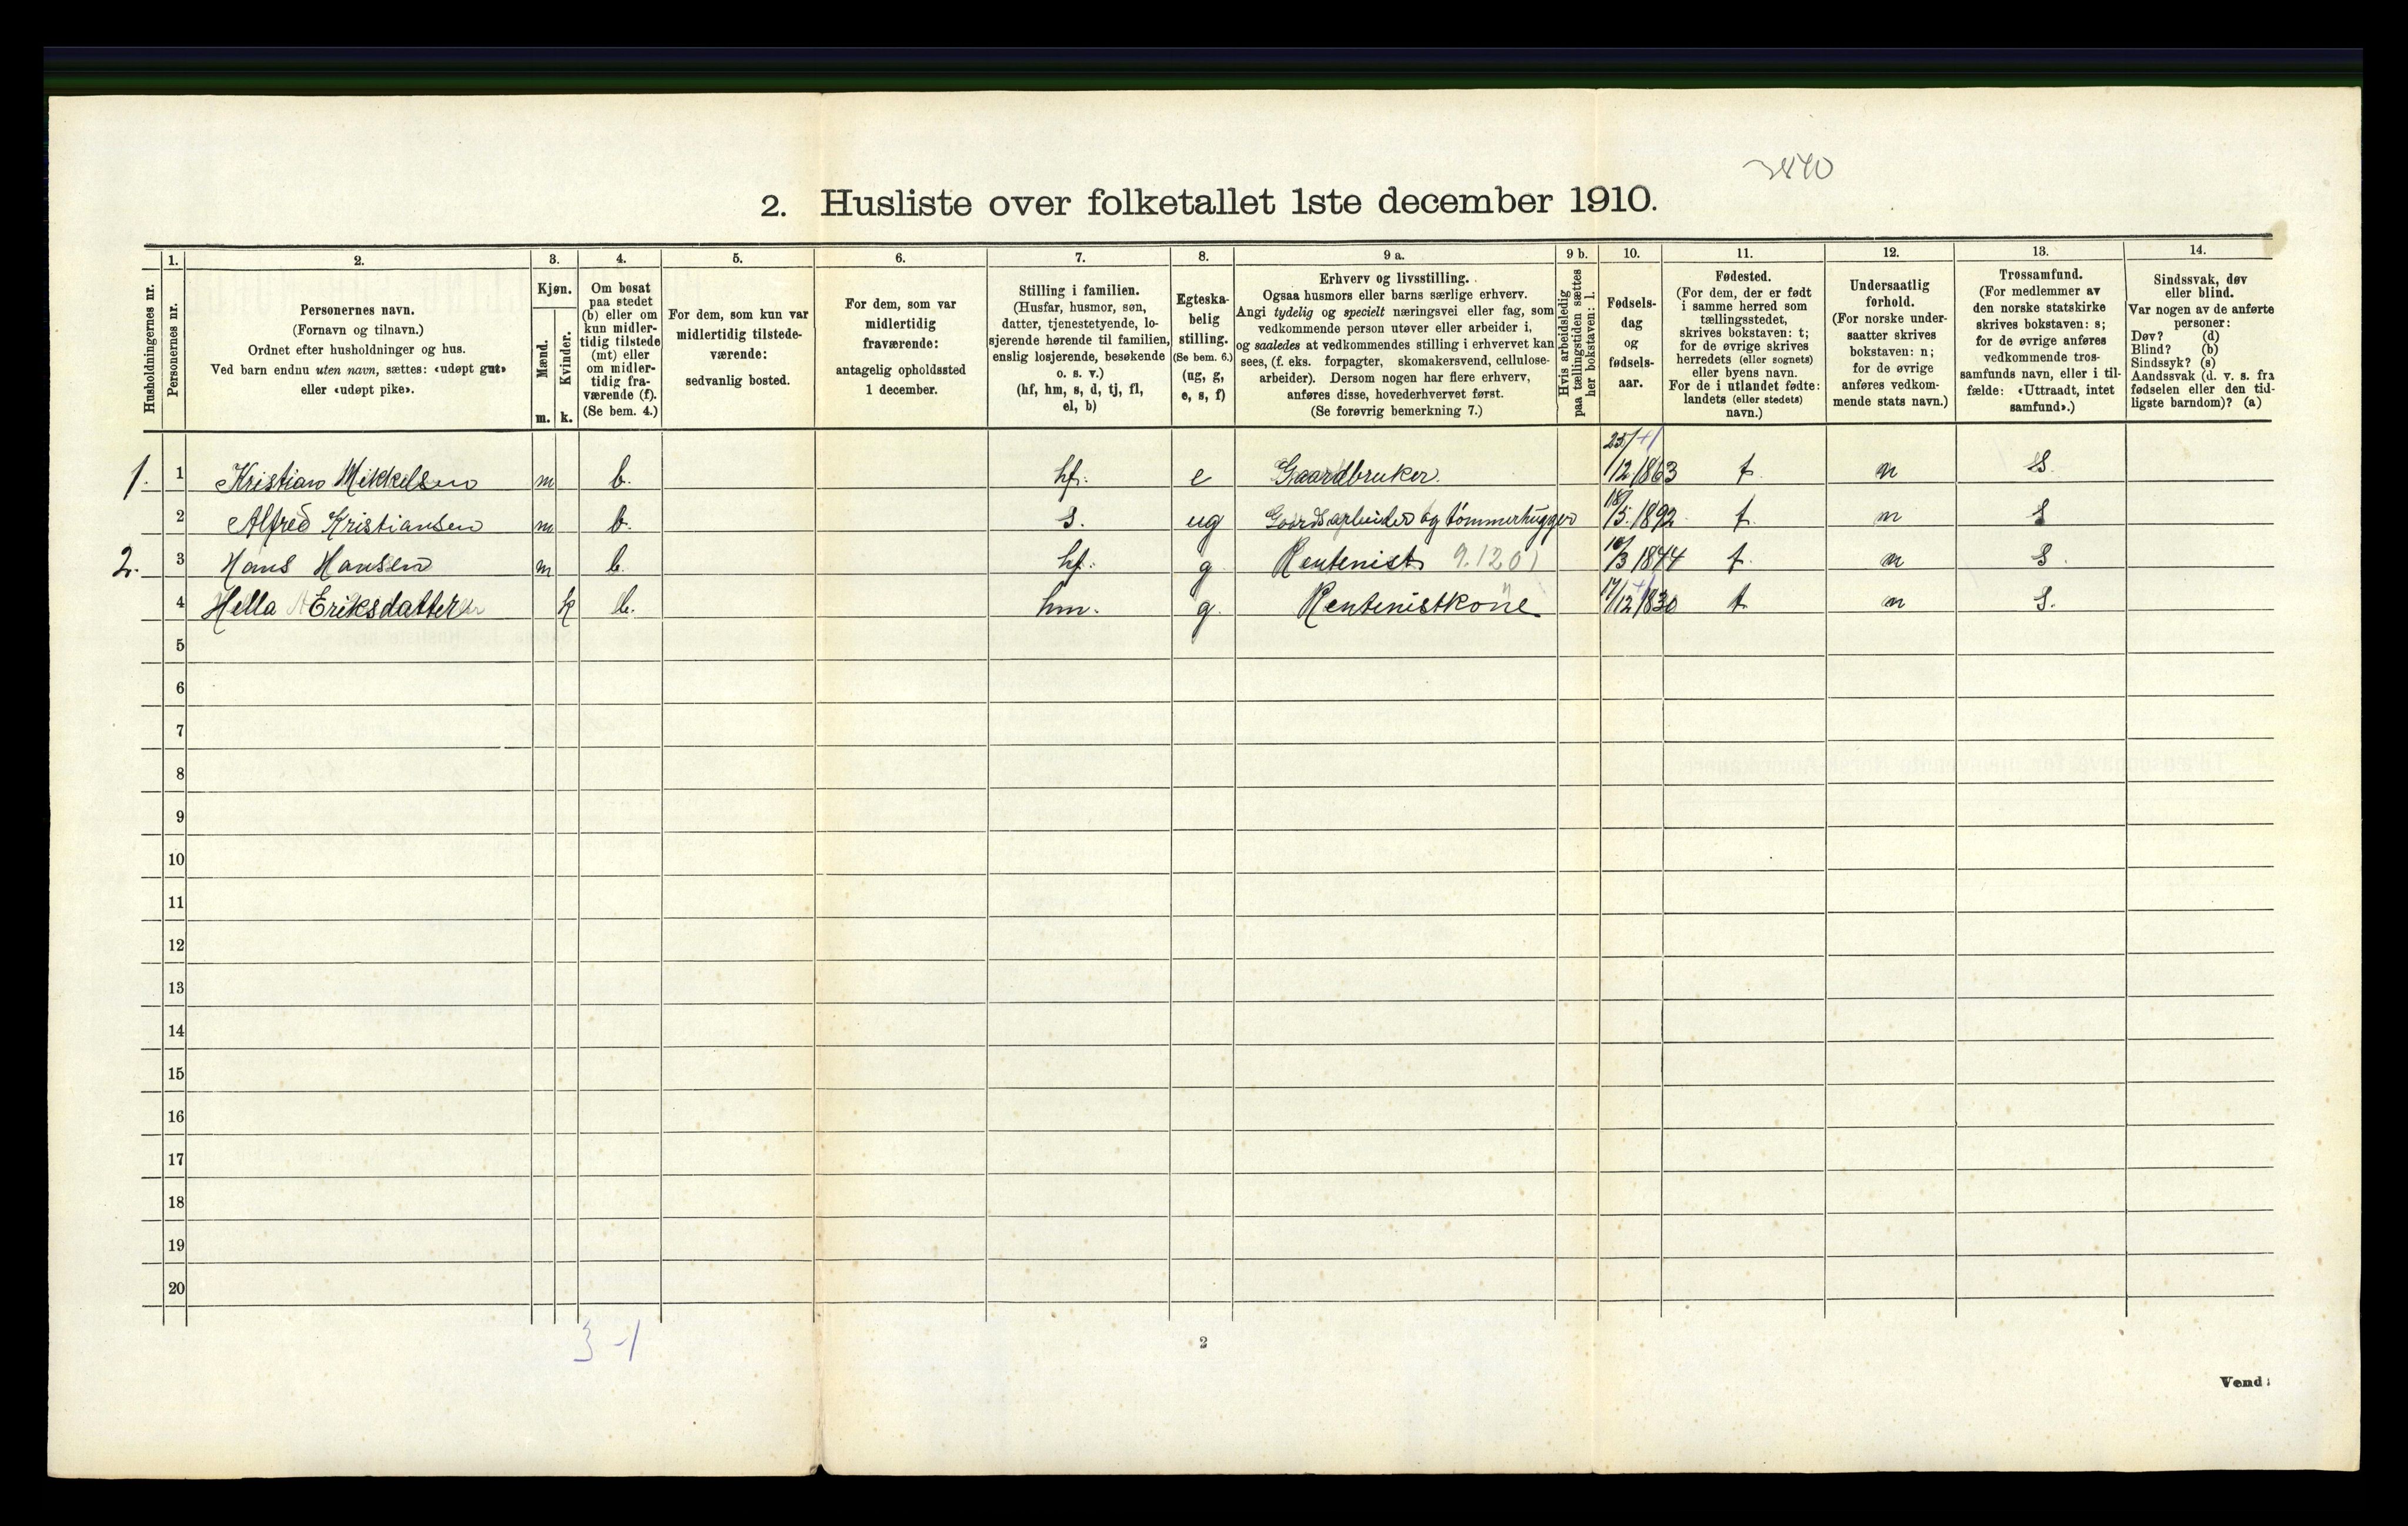 3840
2. Husliste over folketallet 1ste december 1910.
Husholdningernes nr.
1.
Personernes nr.
2.
Personernes navn.
(Fornavn og tilnavn.)
Ordnet efter husholdninger og hus.
Ved barn endnu uten navn, sættes: «udøpt gut»
eller «udøpt pike».
3.
Kjøn.
Mænd.
Kvinder.
m.
k.
4.
Om bosat
paa stedet
(b) eller om
kun midler-
tidig tilstede
(mt) eller
om midler-
tidig fra-
værende (f).
(Se bem. 4.)
5.
For dem, som kun var
midlertidig tilstede-
værende:
sedvanlig bosted.
6.
For dem, som var
midlertidig
fraværende:
antagelig opholdssted
1 december.
7.
Stilling i familien.
(Husfar, husmor, søn,
datter, tjenestetyende, lo-
sjerende hørende til familien,
enslig losjerende, besøkende
o. s. v.)
(hf, hm, s, d, tj, fl,
el, b)
8.
Egteska-
belig
stilling.
(Se bem. 6.)
(ug, g,
e, s, f)
9 a.
Erhverv og livsstilling.
Ogsaa husmors eller barns særlige erhverv.
Angi tydelig og specielt næringsvei eller fag, som
vedkommende person utøver eller arbeider i,
og saaledes at vedkommendes stilling i erhvervet kan
sees, (f. eks. forpagter, skomakersvend, cellulose-
arbeider). Dersom nogen har flere erhverv,
anføres disse, hovederhvervet først.
(Se forøvrig bemerkning 7.)
9 b.
Hvis arbeidsledig
paa tællingstiden sættes
her bokstaven: l.
10.
Fødsels-
dag
og
fødsels-
aar.
11.
Fødested.
(For dem, der er født
i samme herred som
tællingsstedet,
skrives bokstaven: t;
for de øvrige skrives
herredets (eller sognets)
eller byens navn.
For de i utlandet fødte:
landets (eller stedets)
navn.)
12.
Undersaatlig
forhold.
(For norske under-
saatter skrives
bokstaven: n;
for de øvrige
anføres vedkom-
mende stats navn.)
13.
Trossamfund.
(For medlemmer av
den norske statskirke
skrives bokstaven: s;
for de øvrige anføres
vedkommende tros-
samfunds navn, eller i til-
fælde: «Uttraadt, intet
samfund».)
14.
Sindssvak, døv
eller blind.
Var nogen av de anførte
personer:
Døv? (d)
Blind? (b)
Sindssyk? (s)
Aandssvak (d. v. s. fra
fødselen eller den tid-
ligste barndom)? (a)
1. 1 Kristian Mikkelsen m b. hf. e Gaardbruker. 25/12 1863 t n S.
2 Alfred Kristiansen m b. s. ug Gaardsarbeider og tømmerhugger 18/5 1892 t. n S
2. 3 Hans Hansen m b. hf. g Rentenist 9.120) 10/3 1844 t. n S.
4 Hella Eriksdatter k b. hm. g. Rentenistkone 17/12 1830 t n S.
5
6
7
8
9
10
11
12
13
14
15
16
17
18
19
20
3 -1
2
Vend!